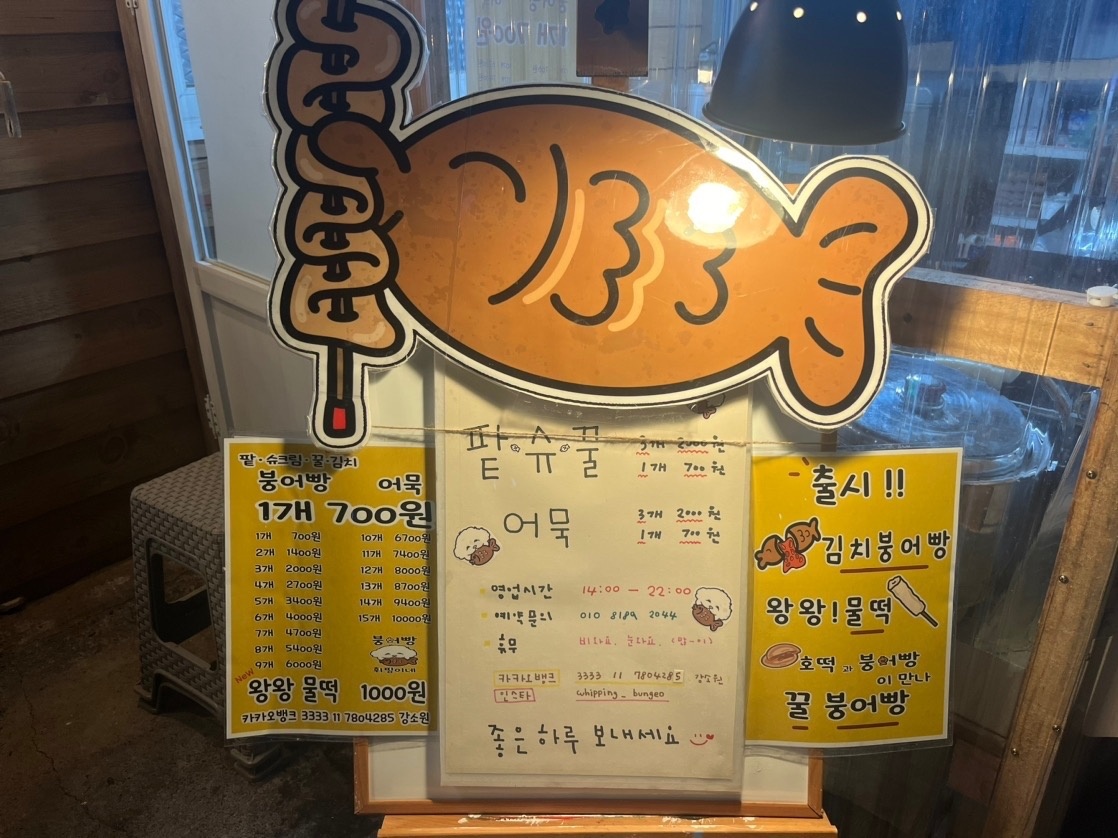 팥·슈크림·꿀·김치
붕어빵 어묵
1개 700원
1개 700원
2개 1400원
3개 2000원
4개 2700원
5개 3400원
6개 4000원
7개 4700원
8개 5400원
9개 6000원
10개 6700원
11개 7400원
12개 8000원
13개 8700원
14개 9400원
15개 10000원
붕어빵
휘핑이네
New
왕왕 물떡 1000원
카카오뱅크 3333 11 7804285 강소원
팥·슈·꿀
3개 2000원
1개 700원
어묵
3개 2000원
1개 700원
영업시간 14:00 - 22:00
예약문의 010 8189 2044
휴무 비와요, 눈와요,
카카오뱅크 3333 11 7804285 강소원
인스타 whipping_bungeo
좋은하루 보내세요
출시 !!
김치붕어빵
왕왕! 물떡
호떡 과 붕어빵
이 만나
꿀 붕어빵
1개 700원